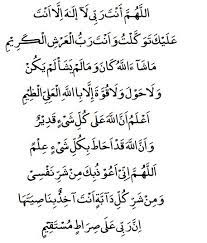 اَللّٰهُمَّ اَنْتَ رَبِّىْ لَآ اِلٰهَ اِلَّا اَنْتَ
عَلَيْكَ تَوَكَّلْتُ وَاَنْتَ رَبُّ الْعَرْشِ الْكَرِيْمِ
مَاشَآءَ اللّٰهُ كَانَ وَمَالَمْ يَشَأْ لَمْ يَكُنْ
وَلَا حَوْلَ وَلَا قُوَّةَ اِلَّا بِاللّٰهِ الْعَلِىِّ الْعَظِيْمِ
اَعْلَمُ اَنَّ اللّٰهَ عَلٰى كُلِّ شَىْءٍ قَدِيْرٌ
وَاَنَّ اللّٰهَ قَدْ اَحَاطَ بِكُلِّ شَىْءٍ عِلْمًا
اَللّٰهُمَّ اِنِّىْ اَعُوْذُ بِكَ مِنْ شَرِّ نَفْسِىْ
وَمِنْ شَرِّ كُلِّ دَآبَّةٍ اَنْتَ اٰخِذٌ بِنَاصِيَتِهَا
اِنَّ رَبِّىْ عَلٰى صِرَاطٍ مُسْتَقِيْمٍ